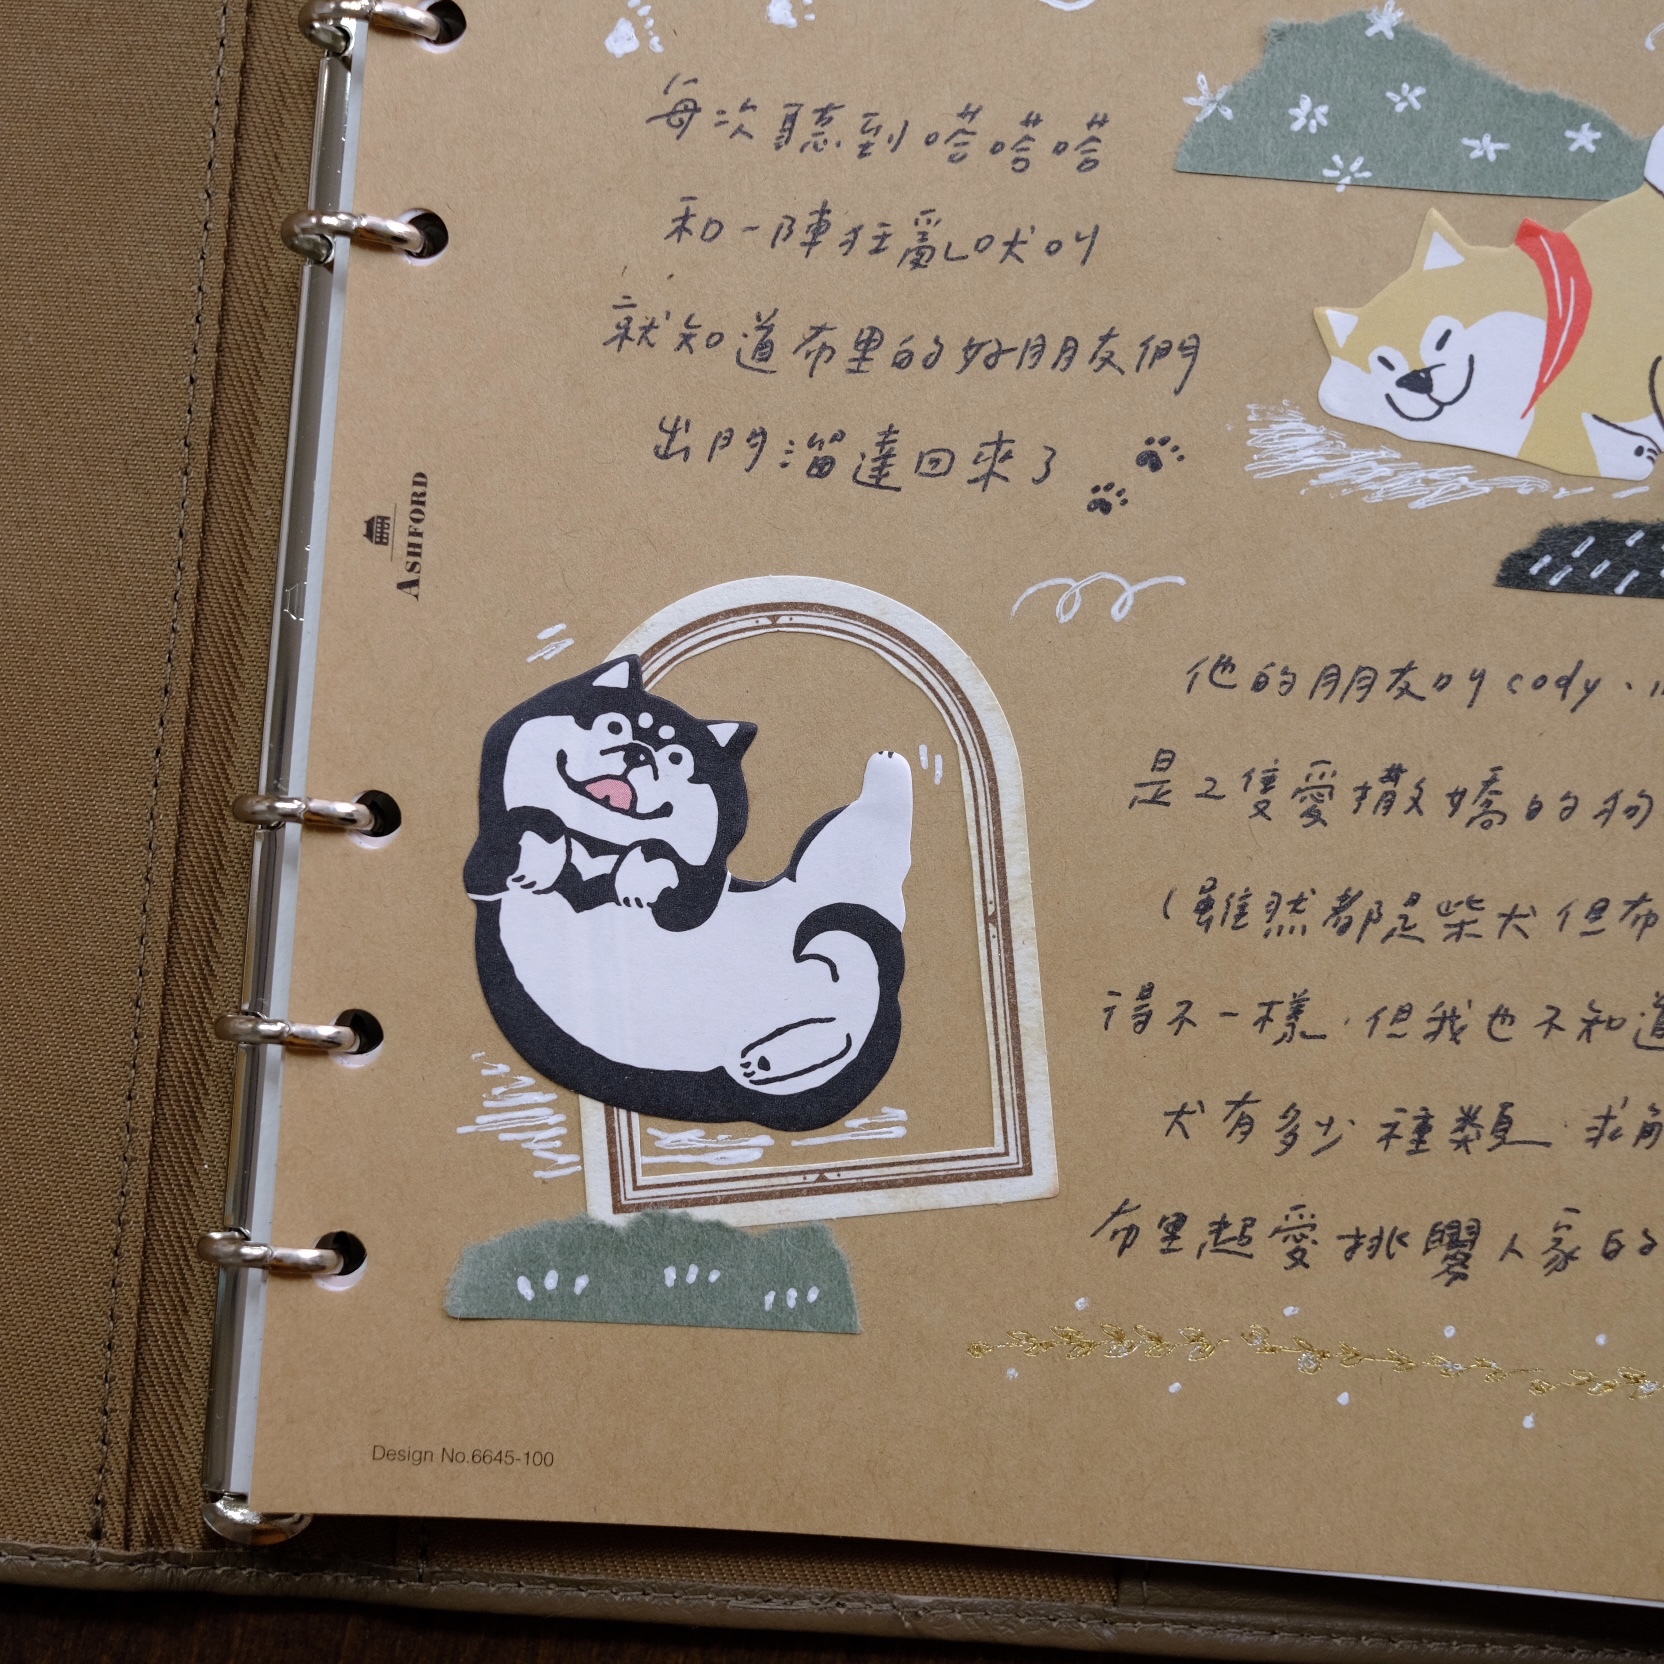 每次聽到嗒嗒嗒
和一陣狂亂吠叫
就知道布里的好朋友們
出門溜達回來了
ASHFORD
他的朋友叫cody、
是2隻愛撒嬌的狗
(雖然都是柴犬但布
得不一樣、但我也不知道
犬有多少種類 求解
布里超愛挑釁人家的
Design No.6645-100